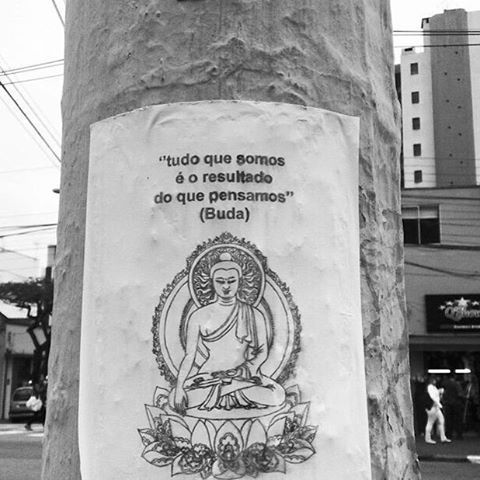 "tudo que somos
é o resultado
do que pensamos"
(Buda)